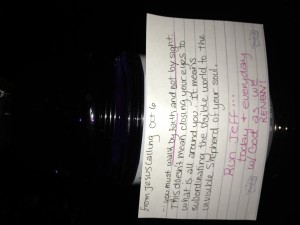 from Jesus Calling Oct 6
...you must walk by faith and not by sight.
This doesn't mean closing your eyes to
what is all around you. It means
subordinating the visible world to the
invisible Shepherd of your soul.
RUN JEFF...
today + everyday
w/ God as ur